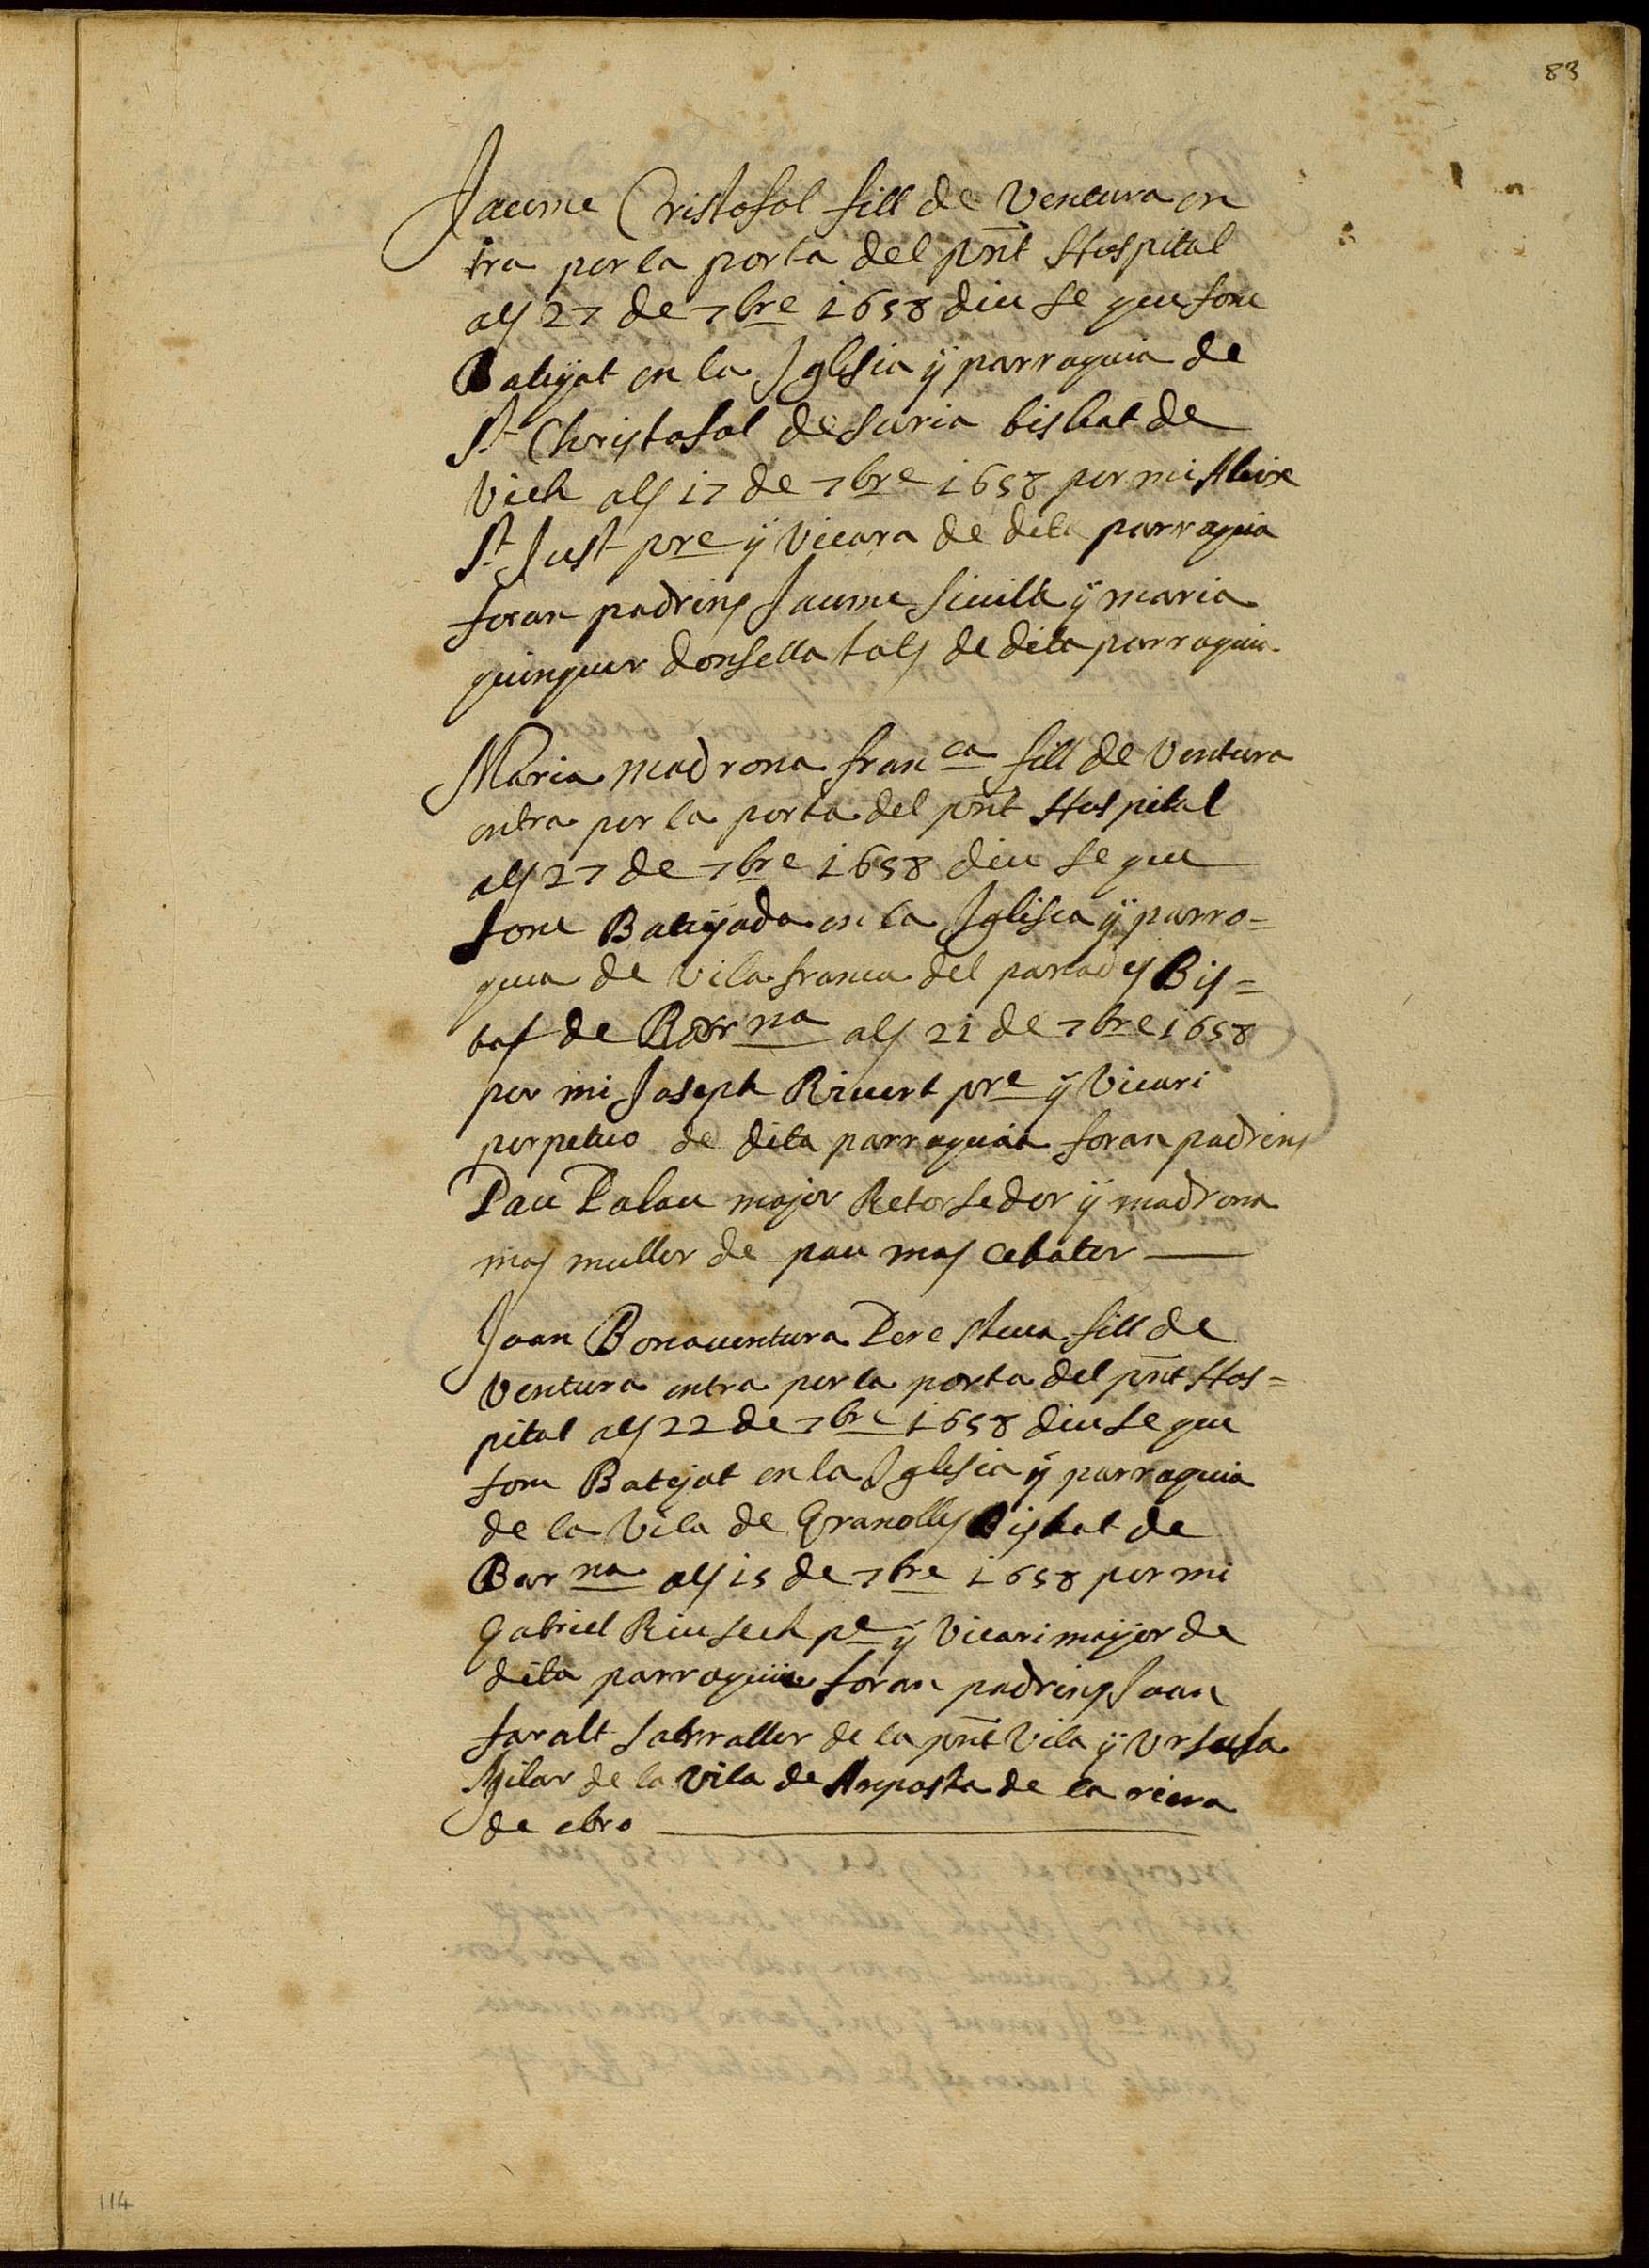 83
Jaume Cristofol fill de Ventura en
tra per la porta del pñt Hospital
als 27 de 7bre 1658 diu se que fonc
Batyat en la Iglesia ÿ parroquia de
St Christofol de suria bisbat de
Vich als 17 de 7bre 1658 per mi
St Just pre ÿ Vicara de dita parroquia
foran padrins Jaume siuilla ÿ maria
quinquer donsella tals de dita parroquia
Maria madrona franca fill de Ventura
entra per la porta del pñt Hospital
als 27 de 7bre 1658 diu se que
fonc Batyada en la Iglisea ÿ parro=
quia de Vilafranca del panades Bis=
bat de Barna als 21 de 7bre 1658
per mi Joseph Riuert pre ÿ Vicari
perpetuo de dita parroquia foran padrins
Pau Palau major Retorsedor ÿ madrona
mas muller de pau mas cabater
Joan Bonauentura Pere fill de
Ventura entra per la porta del pñt Hos=
pital als 22 de 7bre 1658 diu se que
fonc Batejat en la Iglesia ÿ parroquia
de la Vila de Granolles Bisbat de
Barna als 15 de 7bre 1658 per mi
Gabriel Riusech pe ÿ Vicari major de
dita parroquia foran padrins Joan
faralt de la pñt Vila ÿ Ursula
Aguilar de la Vila de Amposta de la riera
de ebro
114